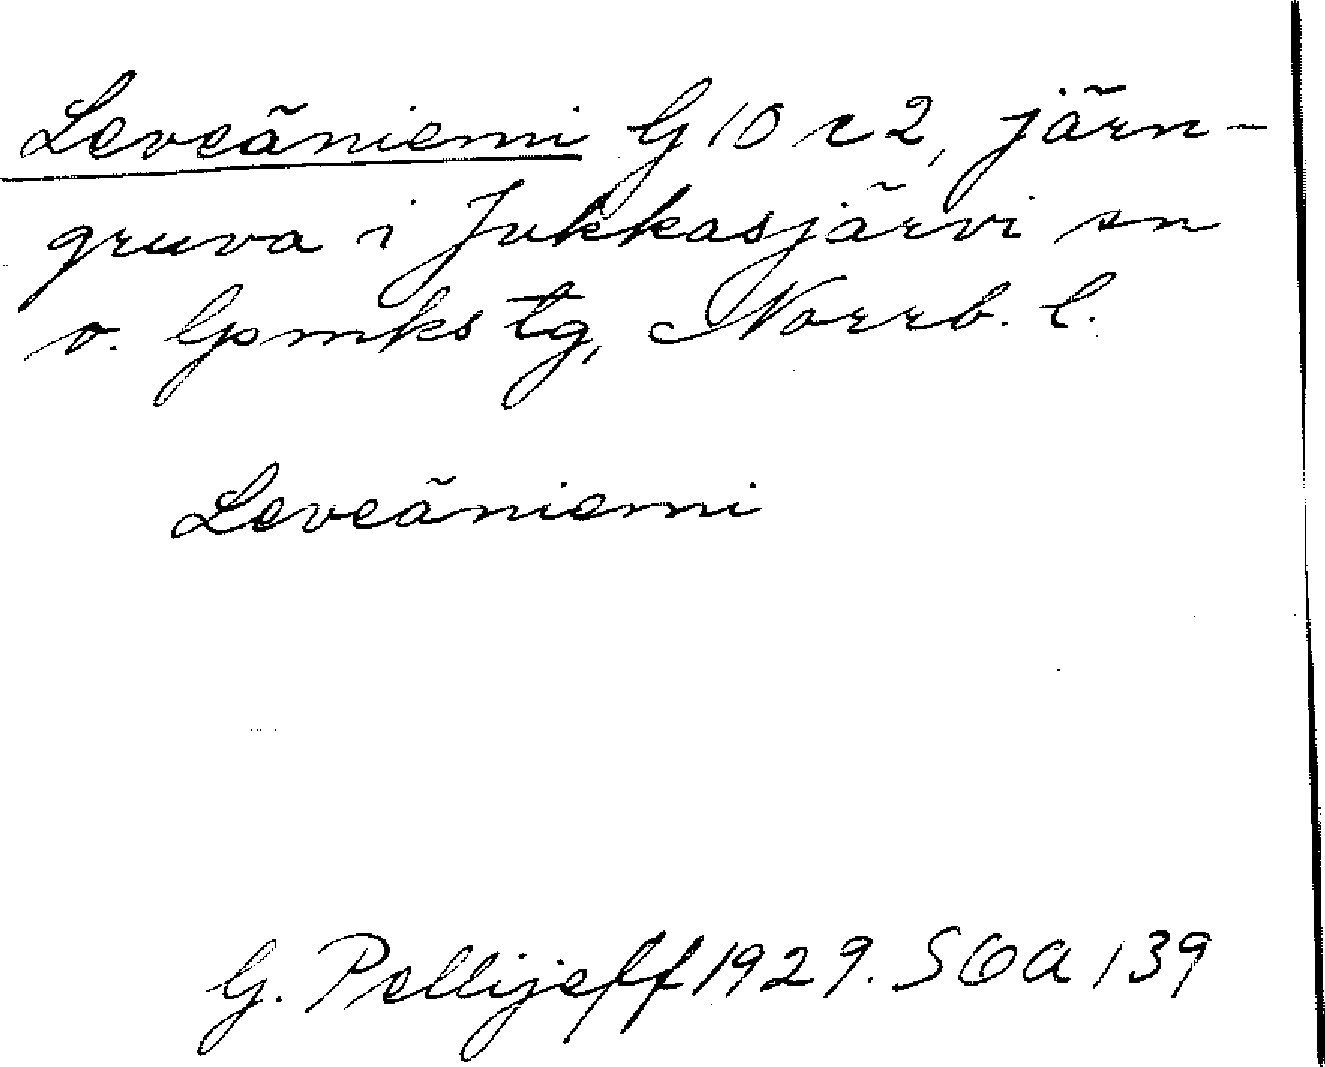 Leveäniemi G 10 c 2, järn-
gruva i Jukkasjärvi sn
o. Gpmks tg, Norrb. l.
Leveäniemi
G. Pellijeff 1929. SOA 139